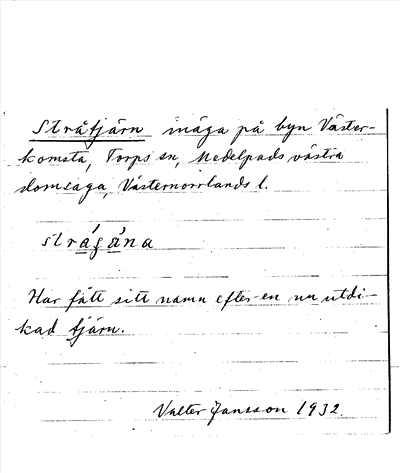 Stråtjärn inäga på byn Väster-
komsta, Torps sn, Medelpads västra
domsaga, Västernorrlands l.
strágána
Har fått sitt namn efter en nu utdi-
kad tjärn.
Valter Jansson 1932.